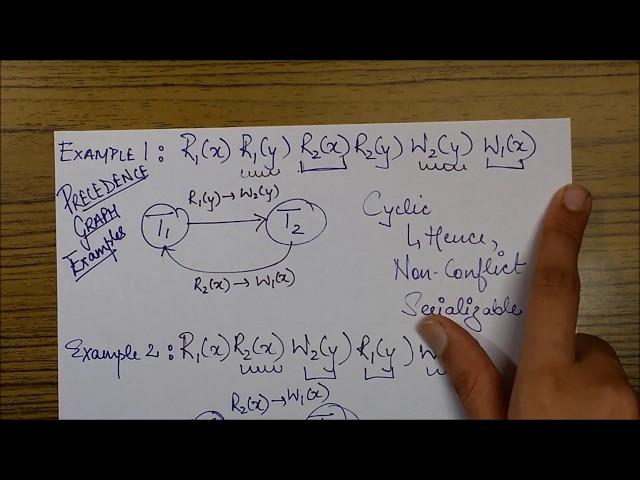 EXAMPLE 1 : R₁(x) R₁(y) R₂(x) R₂(y) W₂(y) W₁(x)
PRECEDENCE
GRAPH
Examples
R₁(y) → W₂(y)
T₁ T₂
R₂(x) → W₁(x)
Cyclic
↳ Hence,
Non-Conflict
Serializable
Example 2 : R₁(x) R₂(x) W₂(y) R₁(y)
R₂(x) → W₁(x)